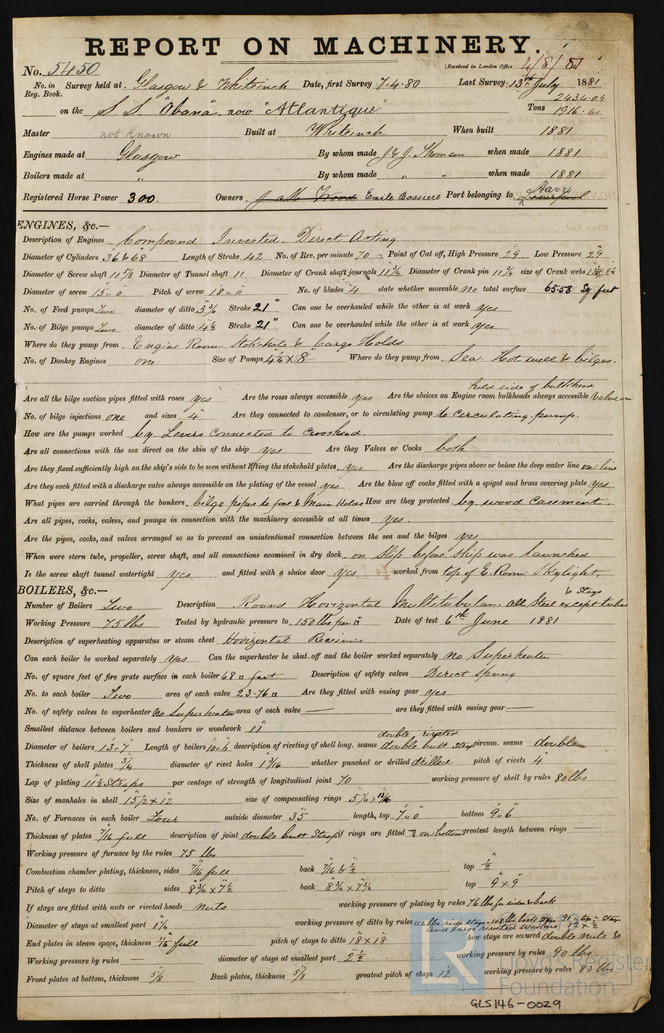 REPORT ON MACHINERY.
No. 5450 (Received in London Office 4/8/81
No. in Reg. Book. Survey held at Glasgow & Whiteinch Date, first Survey 7.4.80 Last Survey 13th July 1881
on the S.S. "Obana" now "Atlantique" Tons 2434.04 1916.60
Master not known Built at Whiteinch When built 1881
Engines made at Glasgow By whom made J & J. Thomson when made 1881
Boilers made at " By whom made " " when made 1881
Registered Horse Power 300. Owners Emile Bossiere Port belonging to Havre
ENGINES, &c.—
Description of Engines Compound Inverted. Direct Acting
Diameter of Cylinders 36 & 68 Length of Stroke 42 No. of Rev. per minute 70 Point of Cut off, High Pressure 29 Low Pressure 29
Diameter of Screw shaft 11 7/8 Diameter of Tunnel shaft 11 Diameter of Crank shaft journals 11 3/4 Diameter of Crank pin 11 3/4 size of Crank webs
Diameter of screw 15.0 Pitch of screw 18.0 No. of blades 4 state whether moveable no total surface 65.58 Sq feet
No. of Feed pumps Two diameter of ditto 3 3/4 Stroke 21" Can one be overhauled while the other is at work yes
No. of Bilge pumps Two diameter of ditto 4 1/2 Stroke 21" Can one be overhauled while the other is at work yes
Where do they pump from Engine Room Stokehole & Cargo Holds
No. of Donkey Engines one Size of Pumps 4 1/2 x 8" Where do they pump from Sea. Hotwell & bilges.
Are all the bilge suction pipes fitted with roses yes Are the roses always accessible yes Are the sluices on Engine room bulkheads always accessible Valve on hold side of bulkhead
No. of bilge injections one and sizes 4" Are they connected to condenser, or to circulating pump to circulating pump.
How are the pumps worked by Levers connected to crosshead
Are all connections with the sea direct on the skin of the ship yes Are they Valves or Cocks both
Are they fixed sufficiently high on the ship's side to be seen without lifting the stokehold plates yes Are the discharge pipes above or below the deep water line on line
Are they each fitted with a discharge valve always accessible on the plating of the vessel yes Are the blow off cocks fitted with a spigot and brass covering plate yes
What pipes are carried through the bunkers bilge pipes to fore & Main Holds How are they protected by wood casement.
Are all pipes, cocks, valves, and pumps in connection with the machinery accessible at all times yes.
Are the pipes, cocks, and valves arranged so as to prevent an unintentional connection between the sea and the bilges yes
When were stern tube, propeller, screw shaft, and all connections examined in dry dock on slip before ship was launched
Is the screw shaft tunnel watertight yes and fitted with a sluice door yes worked from top of E. Room Skylight.
BOILERS, &c.—
Number of Boilers Two Description Round Horizontal Multitubular. All Steel except tubes & Stays
Working Pressure 75 lbs Tested by hydraulic pressure to 150 lbs per □" Date of test 6th June 1881
Description of superheating apparatus or steam chest Horizontal Receiver
Can each boiler be worked separately yes Can the superheater be shut off and the boiler worked separately no Superheater
No. of square feet of fire grate surface in each boiler 68 □ feet Description of safety valves Direct Spring
No. to each boiler Two area of each valve 23.76 □ Are they fitted with easing gear yes
No. of safety valves to superheater No Superheater area of each valve — are they fitted with easing gear —
Smallest distance between boilers and bunkers or woodwork 11"
Diameter of boilers 13.7 Length of boilers 10.6 description of riveting of shell long. seams double riveted double butt strap circum. seams double
Thickness of shell plates 3/4 diameter of rivet holes 1 3/16 whether punched or drilled drilled pitch of rivets 4"
Lap of plating 11 1/2 Straps per centage of strength of longitudinal joint 70 working pressure of shell by rules 80 lbs
Size of manholes in shell 15 1/2 x 12 size of compensating rings
No. of Furnaces in each boiler Four outside diameter 35 length, top 7.0 bottom 9.6
Thickness of plates 7/16 full description of joint double butt Strap if rings are fitted greatest length between rings —
Working pressure of furnace by the rules 75 lbs
Combustion chamber plating, thickness, sides 7/16 full back 7/16 & 1/2 top 1/2
Pitch of stays to ditto sides 8 3/4 x 7 1/2 back 8 3/4 x 7 3/4 top 9 x 9
If stays are fitted with nuts or riveted heads nuts working pressure of plating by rules 76 lbs for sides & back
Diameter of stays at smallest part 1 1/4 working pressure of ditto by rules
End plates in steam space, thickness full pitch of stays to ditto 18 x 18 how stays are secured double nuts &
Working pressure by rules — diameter of stays at smallest part 2 1/2 working pressure by rules 90 lbs
Front plates at bottom, thickness 5/8 Back plates, thickness 5/8 greatest pitch of stays 12 working pressure by rules 83 lbs
LR
Lloyd's Register
Foundation
GLS146-0029